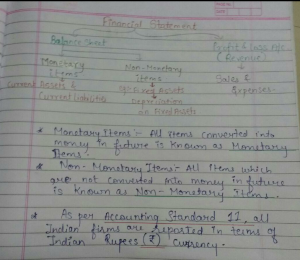 Financial Statement
Balance Sheet
Profit & Loss A/c
(Revenue)
Monetary Items
Non-Monetary Items
Sales &
Expenses
Current Assets &
Current Liabilities
Fixed Assets
Depreciation
on Fixed Assets
* Monetary Items :- All items converted into
money in future is known as Monetary
Items.
* Non-Monetary Items :- All items which
are not converted into money in future
is known as Non-Monetary Items.
* As per Accounting Standard 11, all
Indian firms are reported in terms of
Indian Rupees (₹) currency.